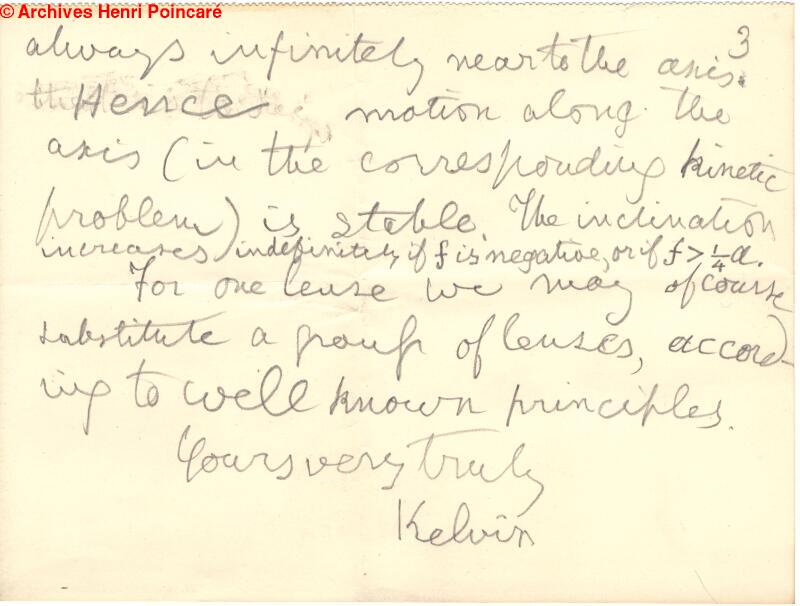 © Archives Henri Poincaré
3
always infinitely near to the axis.
Hence motion along the
axis (in the corresponding kinetic
problem) is stable. The inclination
increases indefinitely if f is negative, or if f > ¼ a.
For one lense we may of course
substitute a group of lenses, accord-
ing to well known principles.
Yours very truly
Kelvin